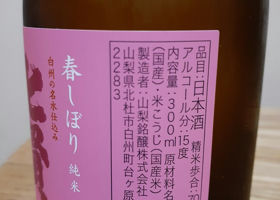 春しぼり
純米
白州の名水仕込み
品目:日本酒 精米歩合:70
アルコール分:15度
内容量:300ml 原材料名
(国産)・米こうじ(国産米)
製造者:山梨銘醸株式会社
山梨県北杜市白州町台ヶ原
2283